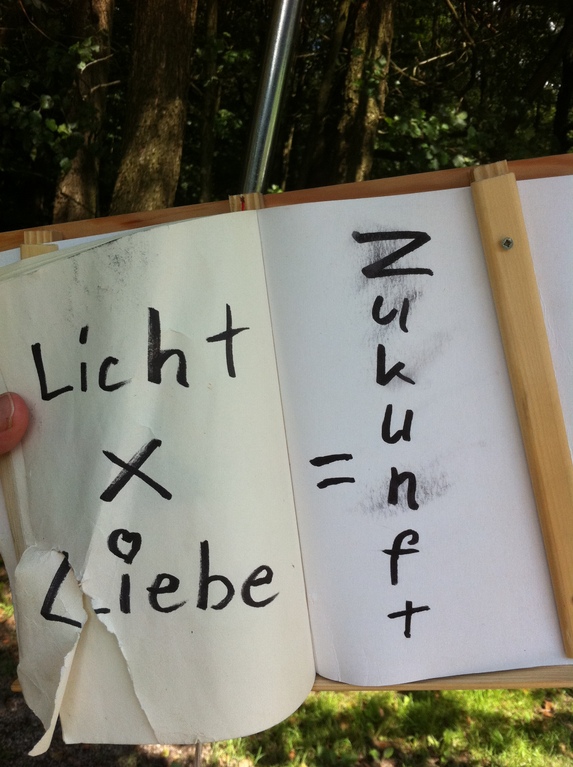 Licht
x
Liebe
=
Zukunft